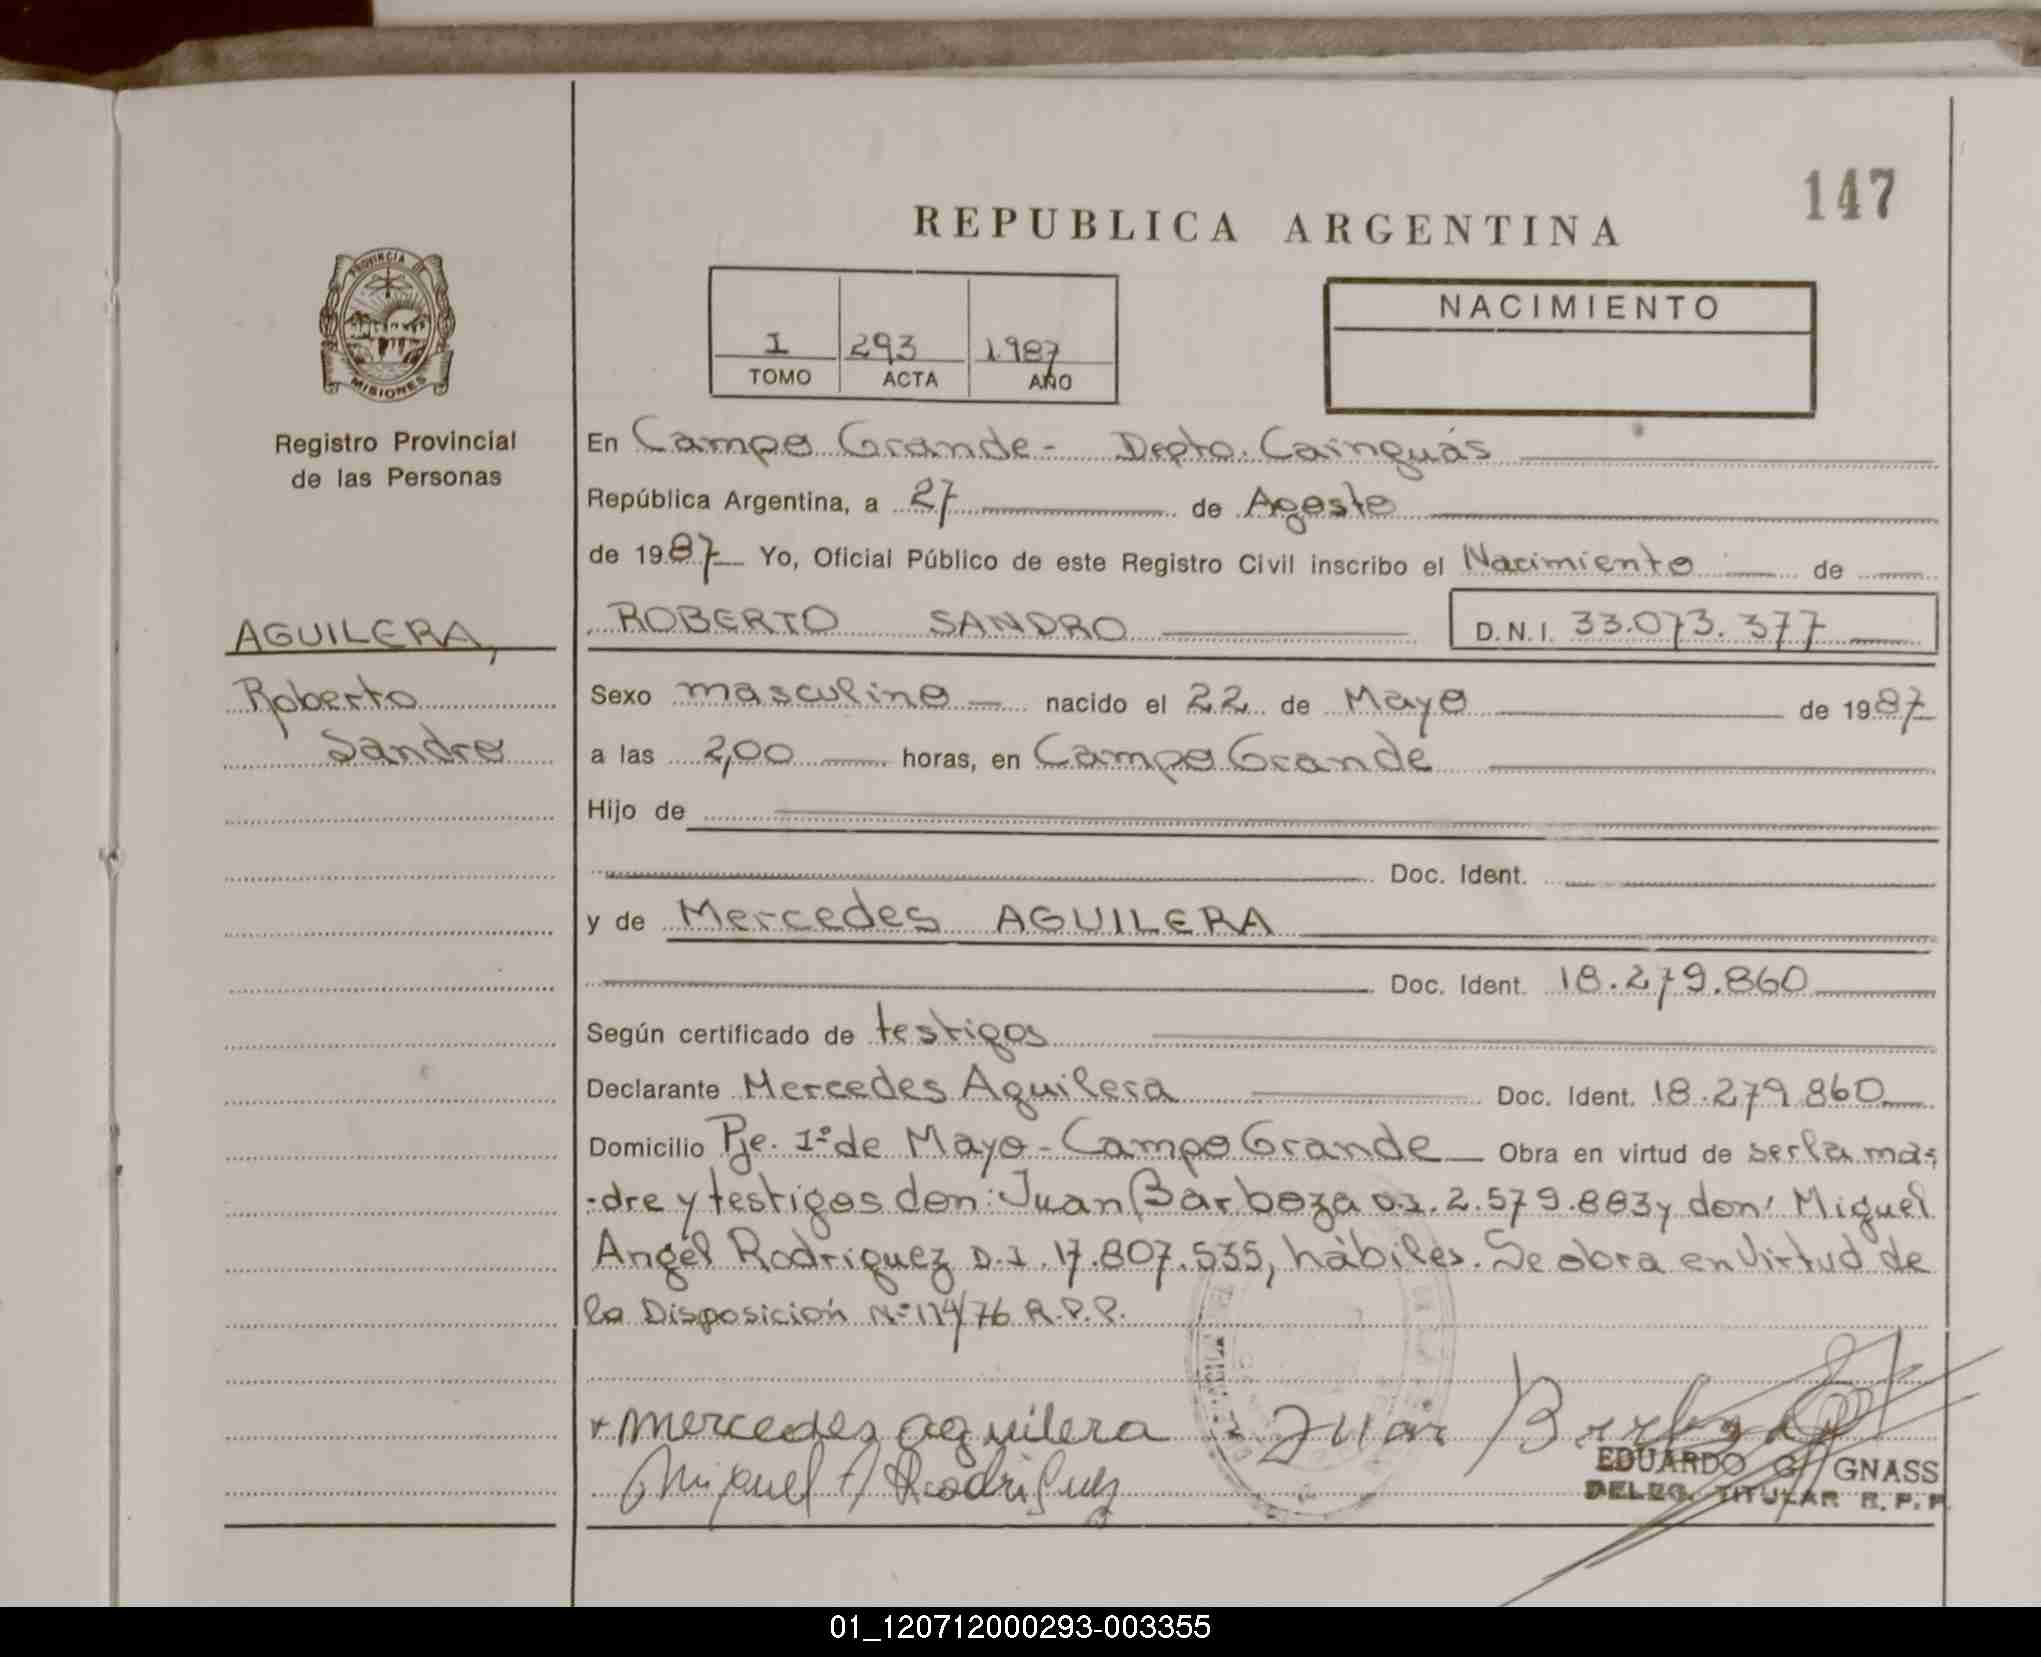 147
REPUBLICA ARGENTINA
PROVINCIA DE
MISIONES
Registro Provincial
de las Personas
I 293 1987
TOMO ACTA AÑO
NACIMIENTO
En Campo Grande - Depto. Cainguás
República Argentina, a 27 de Agosto
de 1987 Yo, Oficial Público de este Registro Civil inscribo el Nacimiento de
AGUILERA,
Roberto
Sandro
ROBERTO SANDRO D.N.I. 33.073.377
Sexo masculino nacido el 22 de Mayo de 1987
a las 2,00 horas, en Campo Grande
Hijo de
Doc. Ident.
y de Mercedes AGUILERA
Doc. Ident. 18.279.860
Según certificado de testigos
Declarante Mercedes Aguilera Doc. Ident. 18.279.860
Domicilio Pje. 1º de Mayo - Campo Grande Obra en virtud de ser la ma-
-dre y testigos don: Juan Barboza D.I. 2.579.883 y don: Miguel
Angel Rodriguez D.I. 17.807.535, hábiles. Se obra en virtud de
la Disposición Nº 114/76 R.P.P.
+ mercedes aguilera Juan Barboza
Miguel A Rodriguez
EDUARDO G. GNASS
DELEG. TITULAR R.P.P
01_120712000293-003355